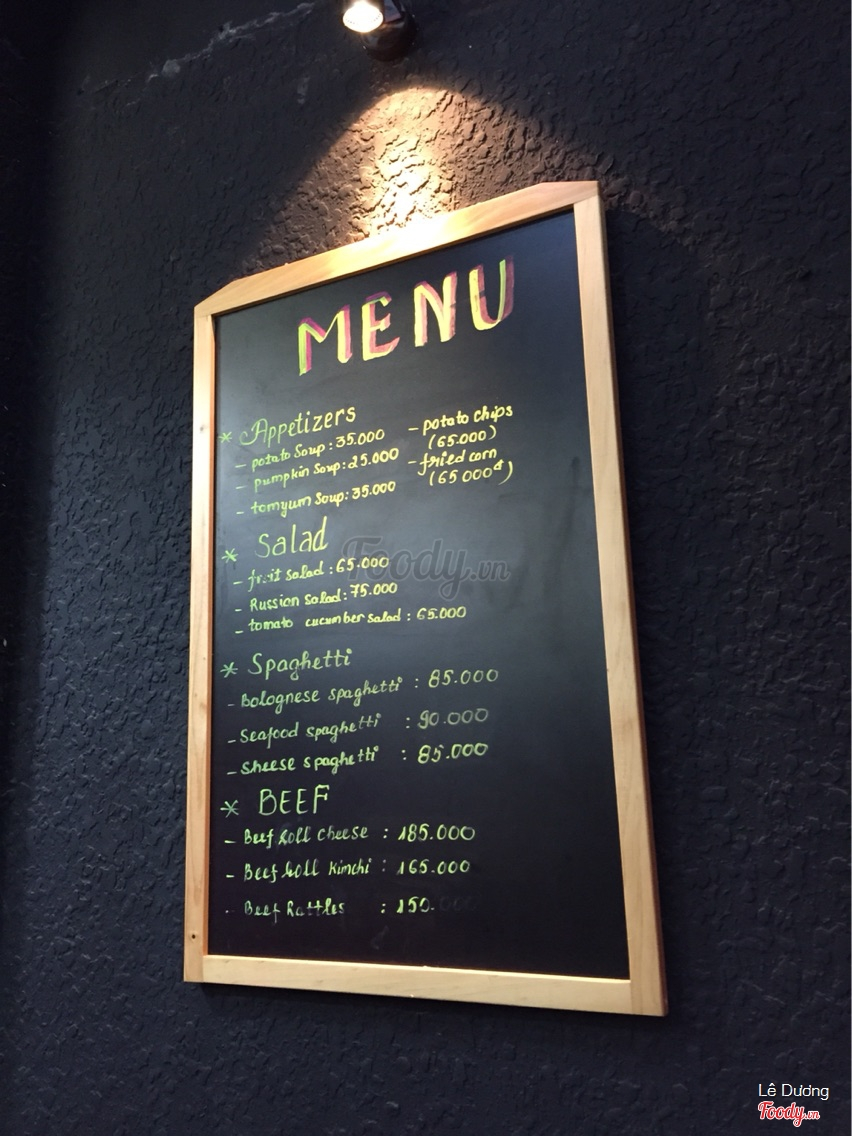 MENU
* Appetizers
- potato Soup : 35.000
- pumpkin Soup : 25.000
- tomyum Soup : 35.000
- potato chips
(65.000)
- fried corn
(65 000đ)
* Salad
- fruit salad : 65.000
- Russion Salad : 75.000
- tomato cucumber salad : 65.000
* Spaghetti
- Bolognese spaghetti : 85.000
- Seafood spaghetti : 90.000
- Sheese spaghetti : 85.000
* BEEF
- Beef Roll cheese : 185.000
- Beef Roll Kimchi : 165.000
- Beef Rattles : 150.000
Foody.vn
Lê Dương
Foody.vn